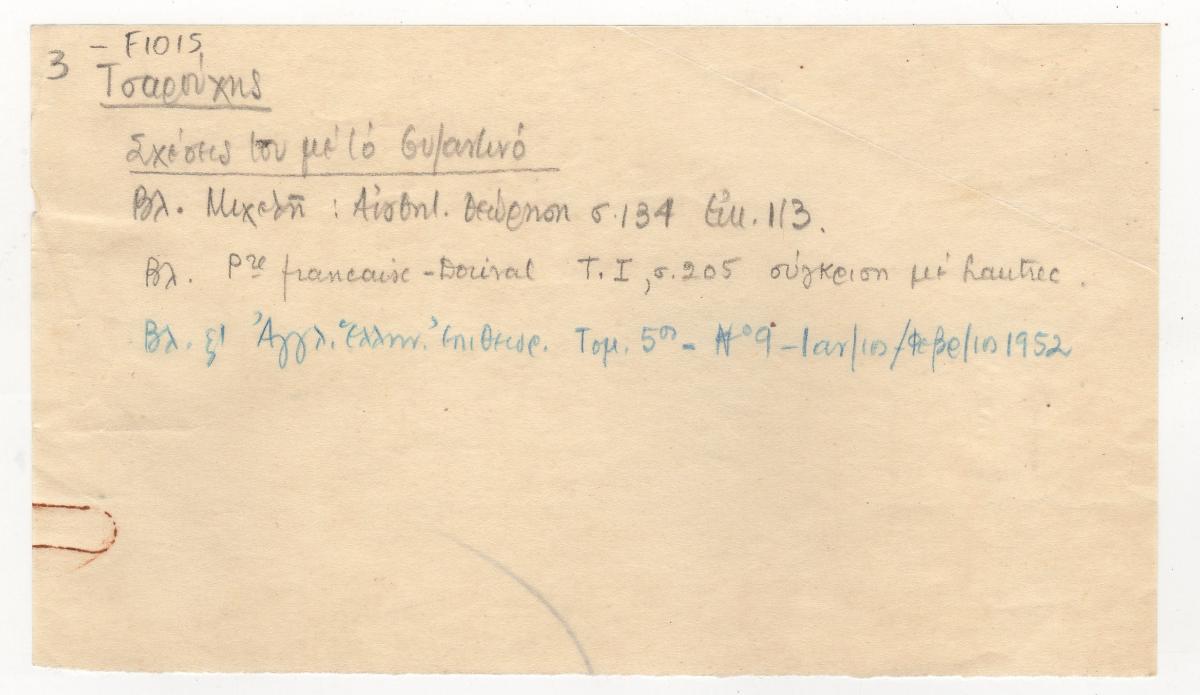 3 – F1015
Τσαρούχης
Σχέσεις του μέ τό βυζαντινό
Βλ. Μιχελῆ : Αἰσθητ. θεώρηση σ. 134 Εἰκ. 113.
Βλ. Pre francaise - Dorival T. I, σ. 205 σύγκριση μέ Lautrec.
Βλ. Ἀγγλ. Ἑλλην. Ἐπιθεωρ. Τομ. 5ος - Nº 9 - Ιαν/ιος/Φεβρ/ιος 1952